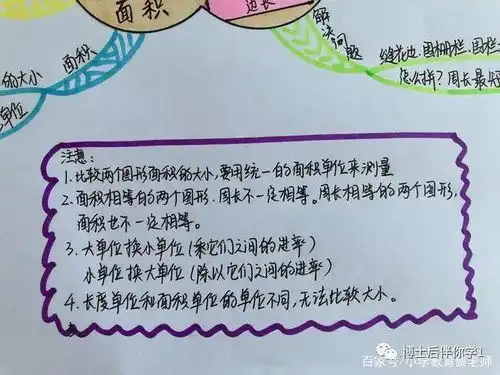 面积
边长
解决问题
面积
的大小
单位
围栅栏、围栏
怎么拼？周长最短
注意：
1.比较两个图形面积的大小，要用统一的面积单位来测量
2.面积相等的两个图形，周长不一定相等。周长相等的两个图形，
面积也不一定相等。
3.大单位换小单位（乘它们之间的进率）
小单位换大单位（除以它们之间的进率）
4.长度单位和面积单位的单位不同，无法比较大小。
博士后伴你学1
百家号/小学教育蔡老师